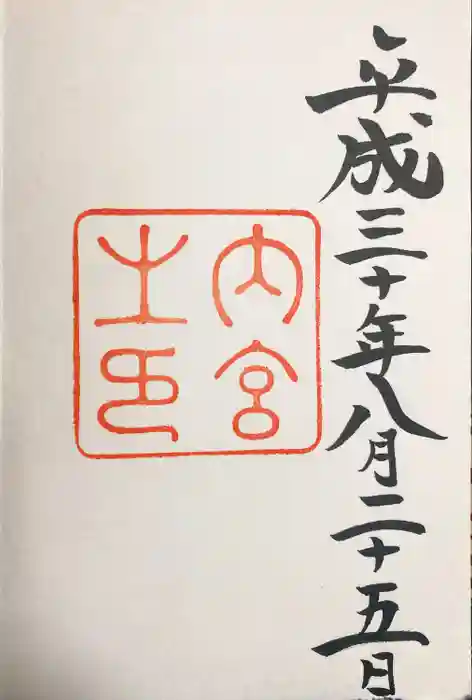 平成三十年八月二十五日
内宮
之印